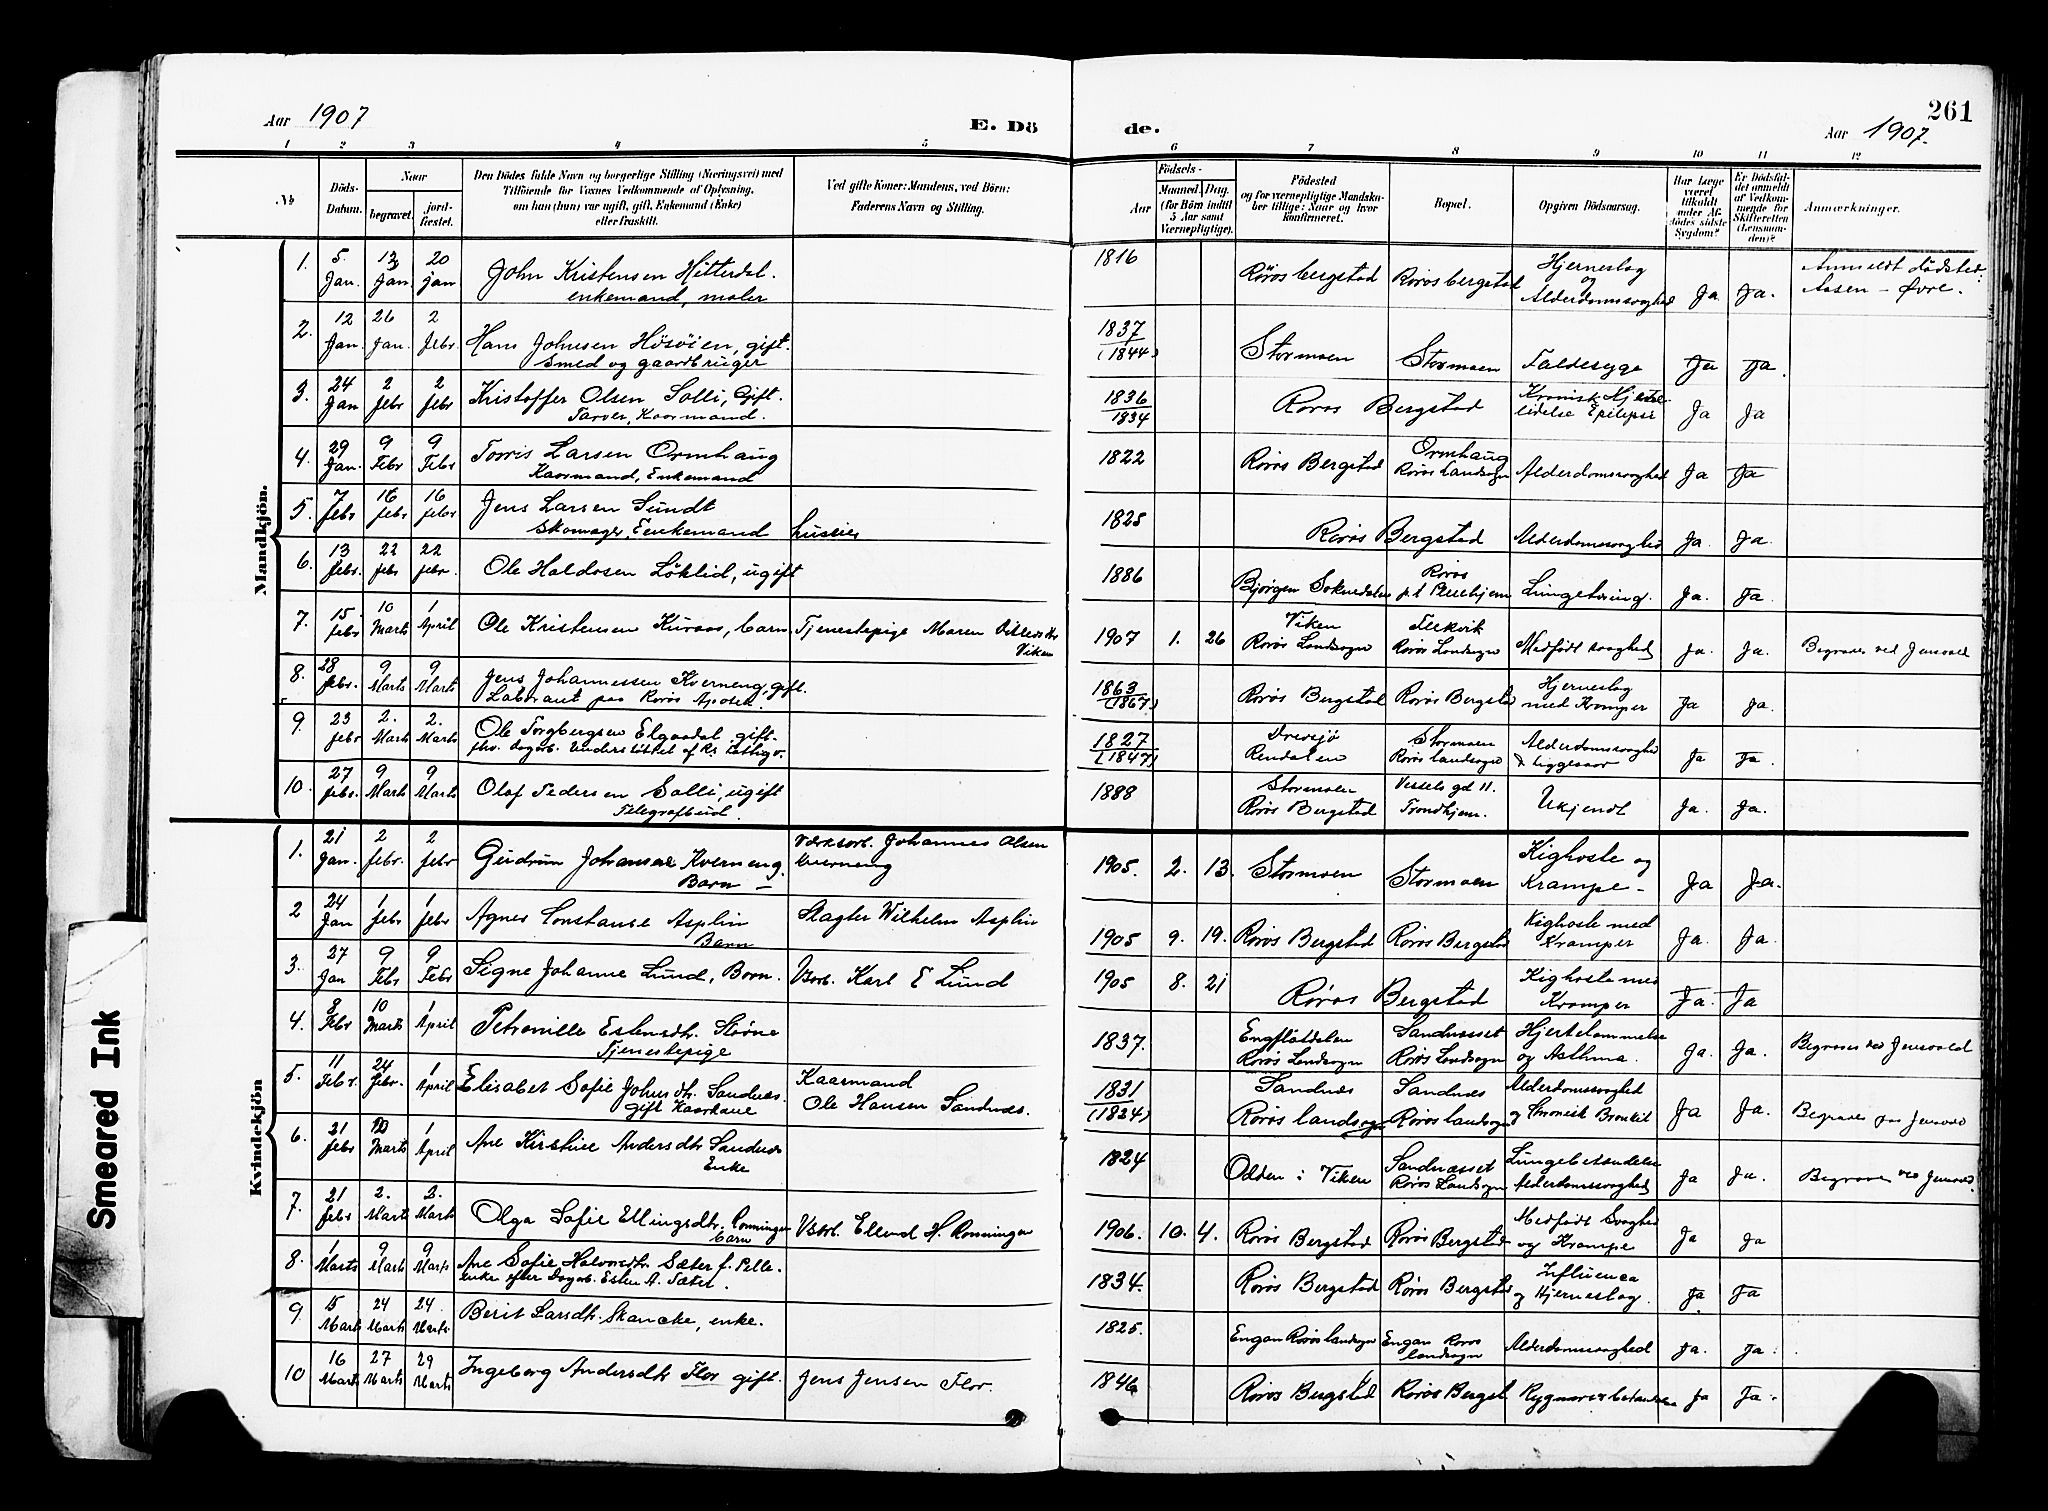 Aar 1907
E. Dö
de.
261
Aar 1907.
1 2 3 4 5 6 7 8 9 10 11 12
No
Döds-Datum.
Naar
begravet.
jordfæstet.
Den Dödes fulde Navn og borgerlige Stilling (Næringsvei) med
Tilföiende for Voxnes Vedkommende af Oplysning,
om han (hun) var ugift, gift, Enkemand (Enke)
eller fraskilt.
Ved gifte Koner: Mandens, ved Börn:
Faderens Navn og Stilling.
Födsels-
Aar
Maaned. Dag.
(for Börn indtil
5 Aar samt
Værnepligtige).
Födested
og for værnepligtige Mandskaber tillige: Naar og hvor
konfirmeret.
Bopæl.
Opgiven Dödsaarsag.
Har Læge
været
tilkaldt
under Afdödes sidste
Sygdom?
Er Dödsfaldet anmeldt
af Vedkommende for
Skifteretten
(Lensmanden)?
Anmærkninger.
Mandkjön.
1. 5. Jan. 13 Jan 20 jan John Kristensen Hitterdal. enkemand, maler 1816 Røros bergstad Røros bergstad Hjerneslag og Alderdomssvaghed Ja Ja. Anmeldt dødsted: Aasen - Øvre.
2. 12 Jan. 26 Jan. 2 Febr. Hans Johnsen Hösöien, gift. Smed og gaardbruger 1837 (1844) Stormoen Stormoen Faldesyge Ja Ja.
3. 24 Jan 2 Febr 2 Febr Kristoffer Olsen Solli, Gift. Farver, Kaarmand. 1836 1834 Røros Bergstad Kronisk Hjertelidelse Epilepsi Ja Ja
4. 29 Jan. 9 Febr 9 Febr Torris Larsen Ormhaug Kaarmand, Enkemand 1822 Røros Bergstad Ormhaug Røros Landsogn Alderdomssvaghed Ja Ja
5. 7 Febr 16 febr 16 febr Jens Larsen Sundt Skomager, Enkemand huseier 1825 Røros Bergstad Alderdomssvaghed Ja. Ja.
6. 13 febr. 22 febr 22 febr. Ole Haldosen Löklid, ugift 1886 Bjørgen Soknedalen Røros Lungetæring. Ja. Ja.
7. 15 febr 10 Marts 1 April Ole Kristensen Kuraas, barn Tjenestepige Maren Viken 1907 1. 26 Viken Røros Landsogn Røros Landsogn Medfödt svaghed Ja. Ja. Begraves ved Jensvold
8. 28 febr. 9 Marts 9 Marts Jens Johannessen Kverneng, gift. Laborant paa Røros Apotek. 1863 (1867) Røros Bergstad Røros Bergstad Hjerneslag med Kramper Ja Ja.
9. 23 febr 2. Marts 2. Marts Ole Torgbergsen Elgaadal, gift. fhv. dagarb. Understöttet af Rs. fattigv. 1827 (1847) Drevsjø Rendalen Stormoen Røros landsogn Alderdomssvaghed & liggesaar Ja Ja.
10. 27 febr. 9 Marts 9 Marts Olaf Pedersen Solli, ugift Telegrafbud. 1888 Stormoen Røros Bergstad Vessels gd 11. Trondhjem. Ukjendt Ja. Ja.
Kvindekjön
1. 21 Jan. 2 febr. 2 febr Gudrun Johansne Kverneng. Barn - Værksarb. Johannes Olsen Kverneng 1905. 2. 13. Stormoen Stormoen Kighoste og Krampe - Ja Ja.
2 24 Jan 1 febr 1 febr Agnes Constanse Asplin Barn Slagter Wilhelm Asplin 1905 9. 19. Røros Bergstad Røros Bergstad Kighoste med Kramper Ja. Ja.
3. 27 Jan 9 Febr 9 Febr Signe Johanne Lund, Barn. Varb. Karl E Lund 1905 8. 21 Røros Bergstad Kighoste med Kramper Ja. Ja
4. 8 Febr 10 Marts 1 April Petronille Estensdtr. Tjenestepige 1837. Røros Landsogn Sandnesset Røros Landsogn Hjertelammelse og Asthma. Ja. Ja. Begraves ved Jensvold
5. 11 Febr. 24 Febr. 1 April Elisabet Sofie Johnsdtr. Sandnes. gift Kaarkone Kaarmand Ole Hansen Sandnes. 1831 (1824) Sandnes Røros landsogn Sandnes Røros landsogn Alderdomssvaghed og kronisk Bronkit Ja Ja. Begraves paa Jensvold
6. 21 febr 10 Marts 1 April Ane Kirstine Andersdtr Sandnes Enke 1824 Odden i Viken Sandnesset Røros Landsogn Lungebetændelse Alderdomssvaghed Ja Ja. Begraves ved Jensvold.
7. 21 febr 2. Marts 2. Marts Olga Sofie Ellingsdtr. Rønningen barn Varb. Ellend H. Rønningen 1906. 10. 4. Røros Bergstad Røros Bergstad Medfödt Svaghed og Krampe Ja Ja
8. 1 Marts 9 Marts 9 Marts Ane Sofie Sæter f. Pelle. enke efter Dagarb. Esten A. Sæter. 1834. Røros Bergstad Røros Bergstad Influenca og Hjerneslag. Ja Ja
9. 15 Marts 24 Marts 24. Marts Berit Larsdtr. Skancke, enke. 1825. Engan Røros landsogn Engan Røros landsogn Alderdomssvaghed Ja. Ja.
10 16 Marts 27 Marts 29 Marts Ingeborg Andersdtr Flor gift. Jens Jensen Flor. 1846 Røros Bergstad Røros Bergst Ja Ja.
Smeared Ink